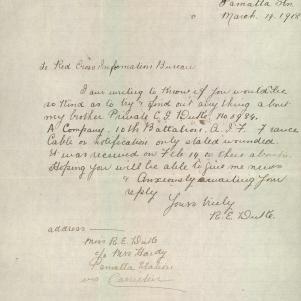 March. 19. 1918
To Red Cross Information Bureau
I am writing to know if you would be
so kind as to try & find out anything about
my brother Private C J
A Company. 10th Battalion. A.I.F. France
Cable or notification only stated wounded.
It was received on Feb 14 or there abouts.
Hoping you will be able to give me news
& Anxiously awaiting your
reply
Yours truly
R. E.
address
Miss R. E.
c/o Mrs Hardy
Station
via Carrieton